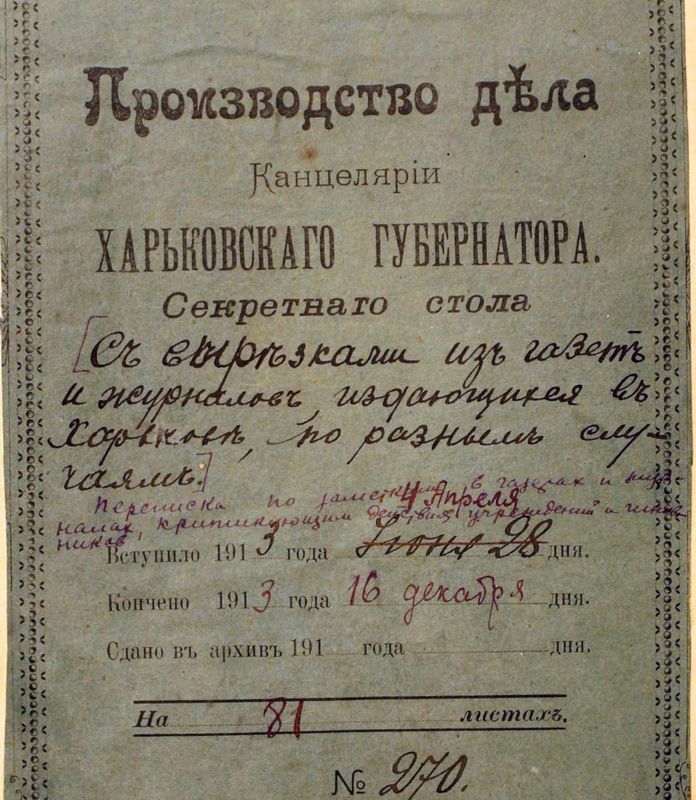 Производство дѣла
Канцеляріи
ХАРЬКОВСКАГО ГУБЕРНАТОРА.
Секретнаго стола
[Съ вырѣзками изъ газетъ
и журналовъ издающихся въ
Харьковѣ, по разнымъ слу-
чаямъ.]
4 Апреля
Переписка по заметкам в газетах и жур-
налах, критикующим действия учреждений и чинов-
ников.
Вступило 1913 года Іюня 28 дня.
Кончено 1913 года 16 декабря дня.
Сдано въ архивъ 191 года дня.
На 81 листахъ.
№ 270.